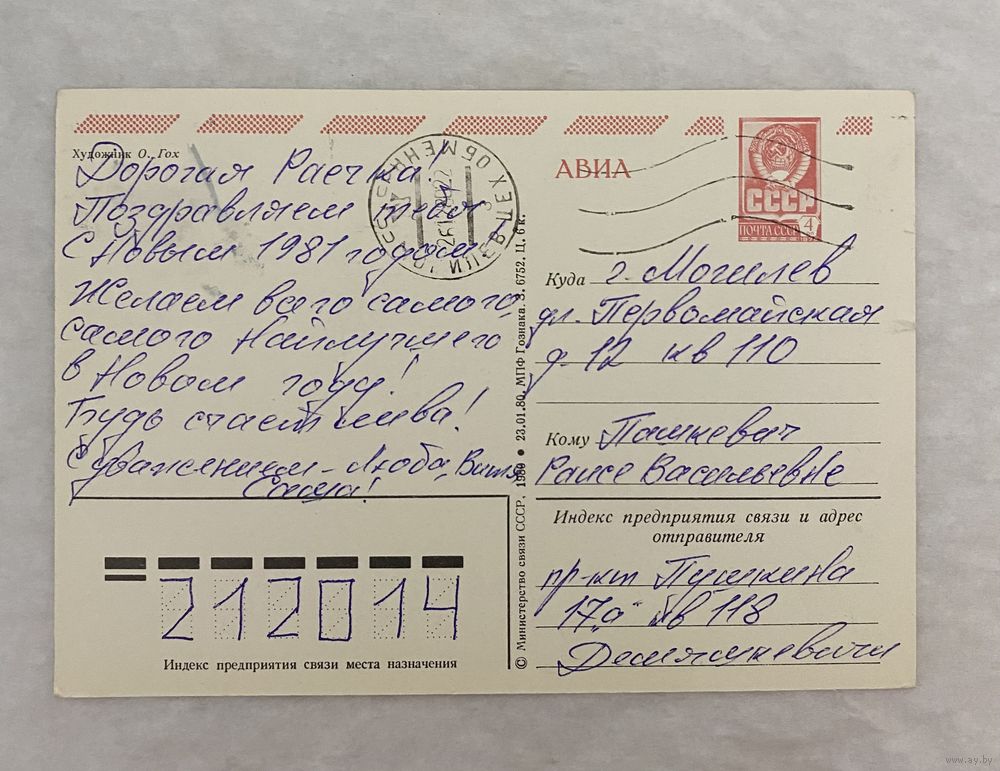 Художник О. Гох
Дорогая Раечка!
Поздравляем тебя
С Новым 1981 годом!
Желаем всего самого,
самого наилучшего
в Новом году!
Будь счастлива!
С уважением - Люба, Витя,
Саша!
АВИА
СССР
ПОЧТА СССР 4
Куда г. Могилев
ул. Первомайская
д. 12 кв 110
Кому Пашкевич
Раисе Васильевне
Индекс предприятия связи и адрес
отправителя
пр-кт Пушкина
17"а" кв 118
Демяшкевичи
212014
Индекс предприятия связи места назначения
© Министерство связи СССР, 1980 • 23.01.80. МПФ Гознака. З. 6752. Ц. 6 к.
www.ay.by